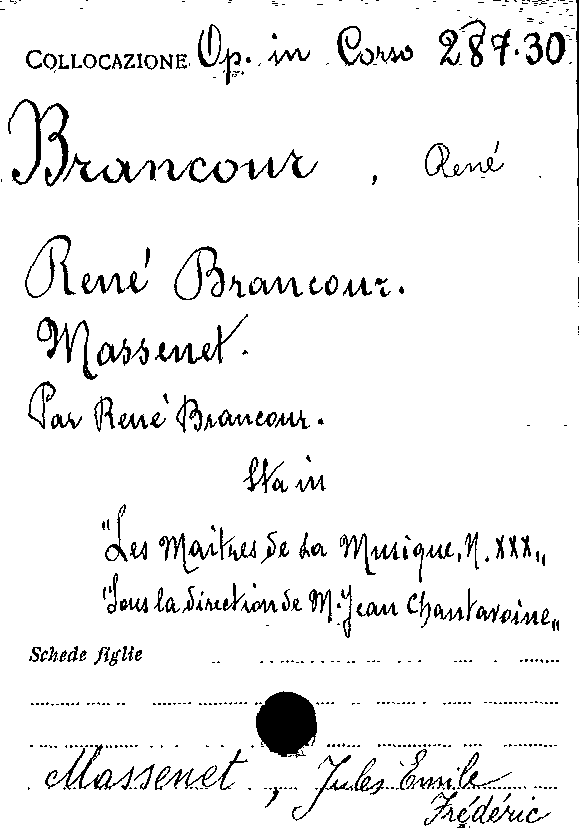 COLLOCAZIONE Op. in Corso 287.30
Brancour, René
René Brancour.
Massenet.
Par René Brancour.
Sta in
"Les Maîtres de La Musique, N. XXX„
"Sous la direction de M. Jean Chantavoine„
Schede figlie
Massenet, Jules Emile
Frédéric